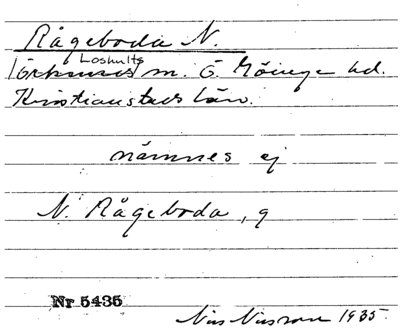 Rågeboda N.
Loshults
Örkeneds m. Ö. Göinge hd.
Kristianstads län.
nämnes ej
N. Rågeboda, g
Nr 5435
Nils Nilsson 1935.